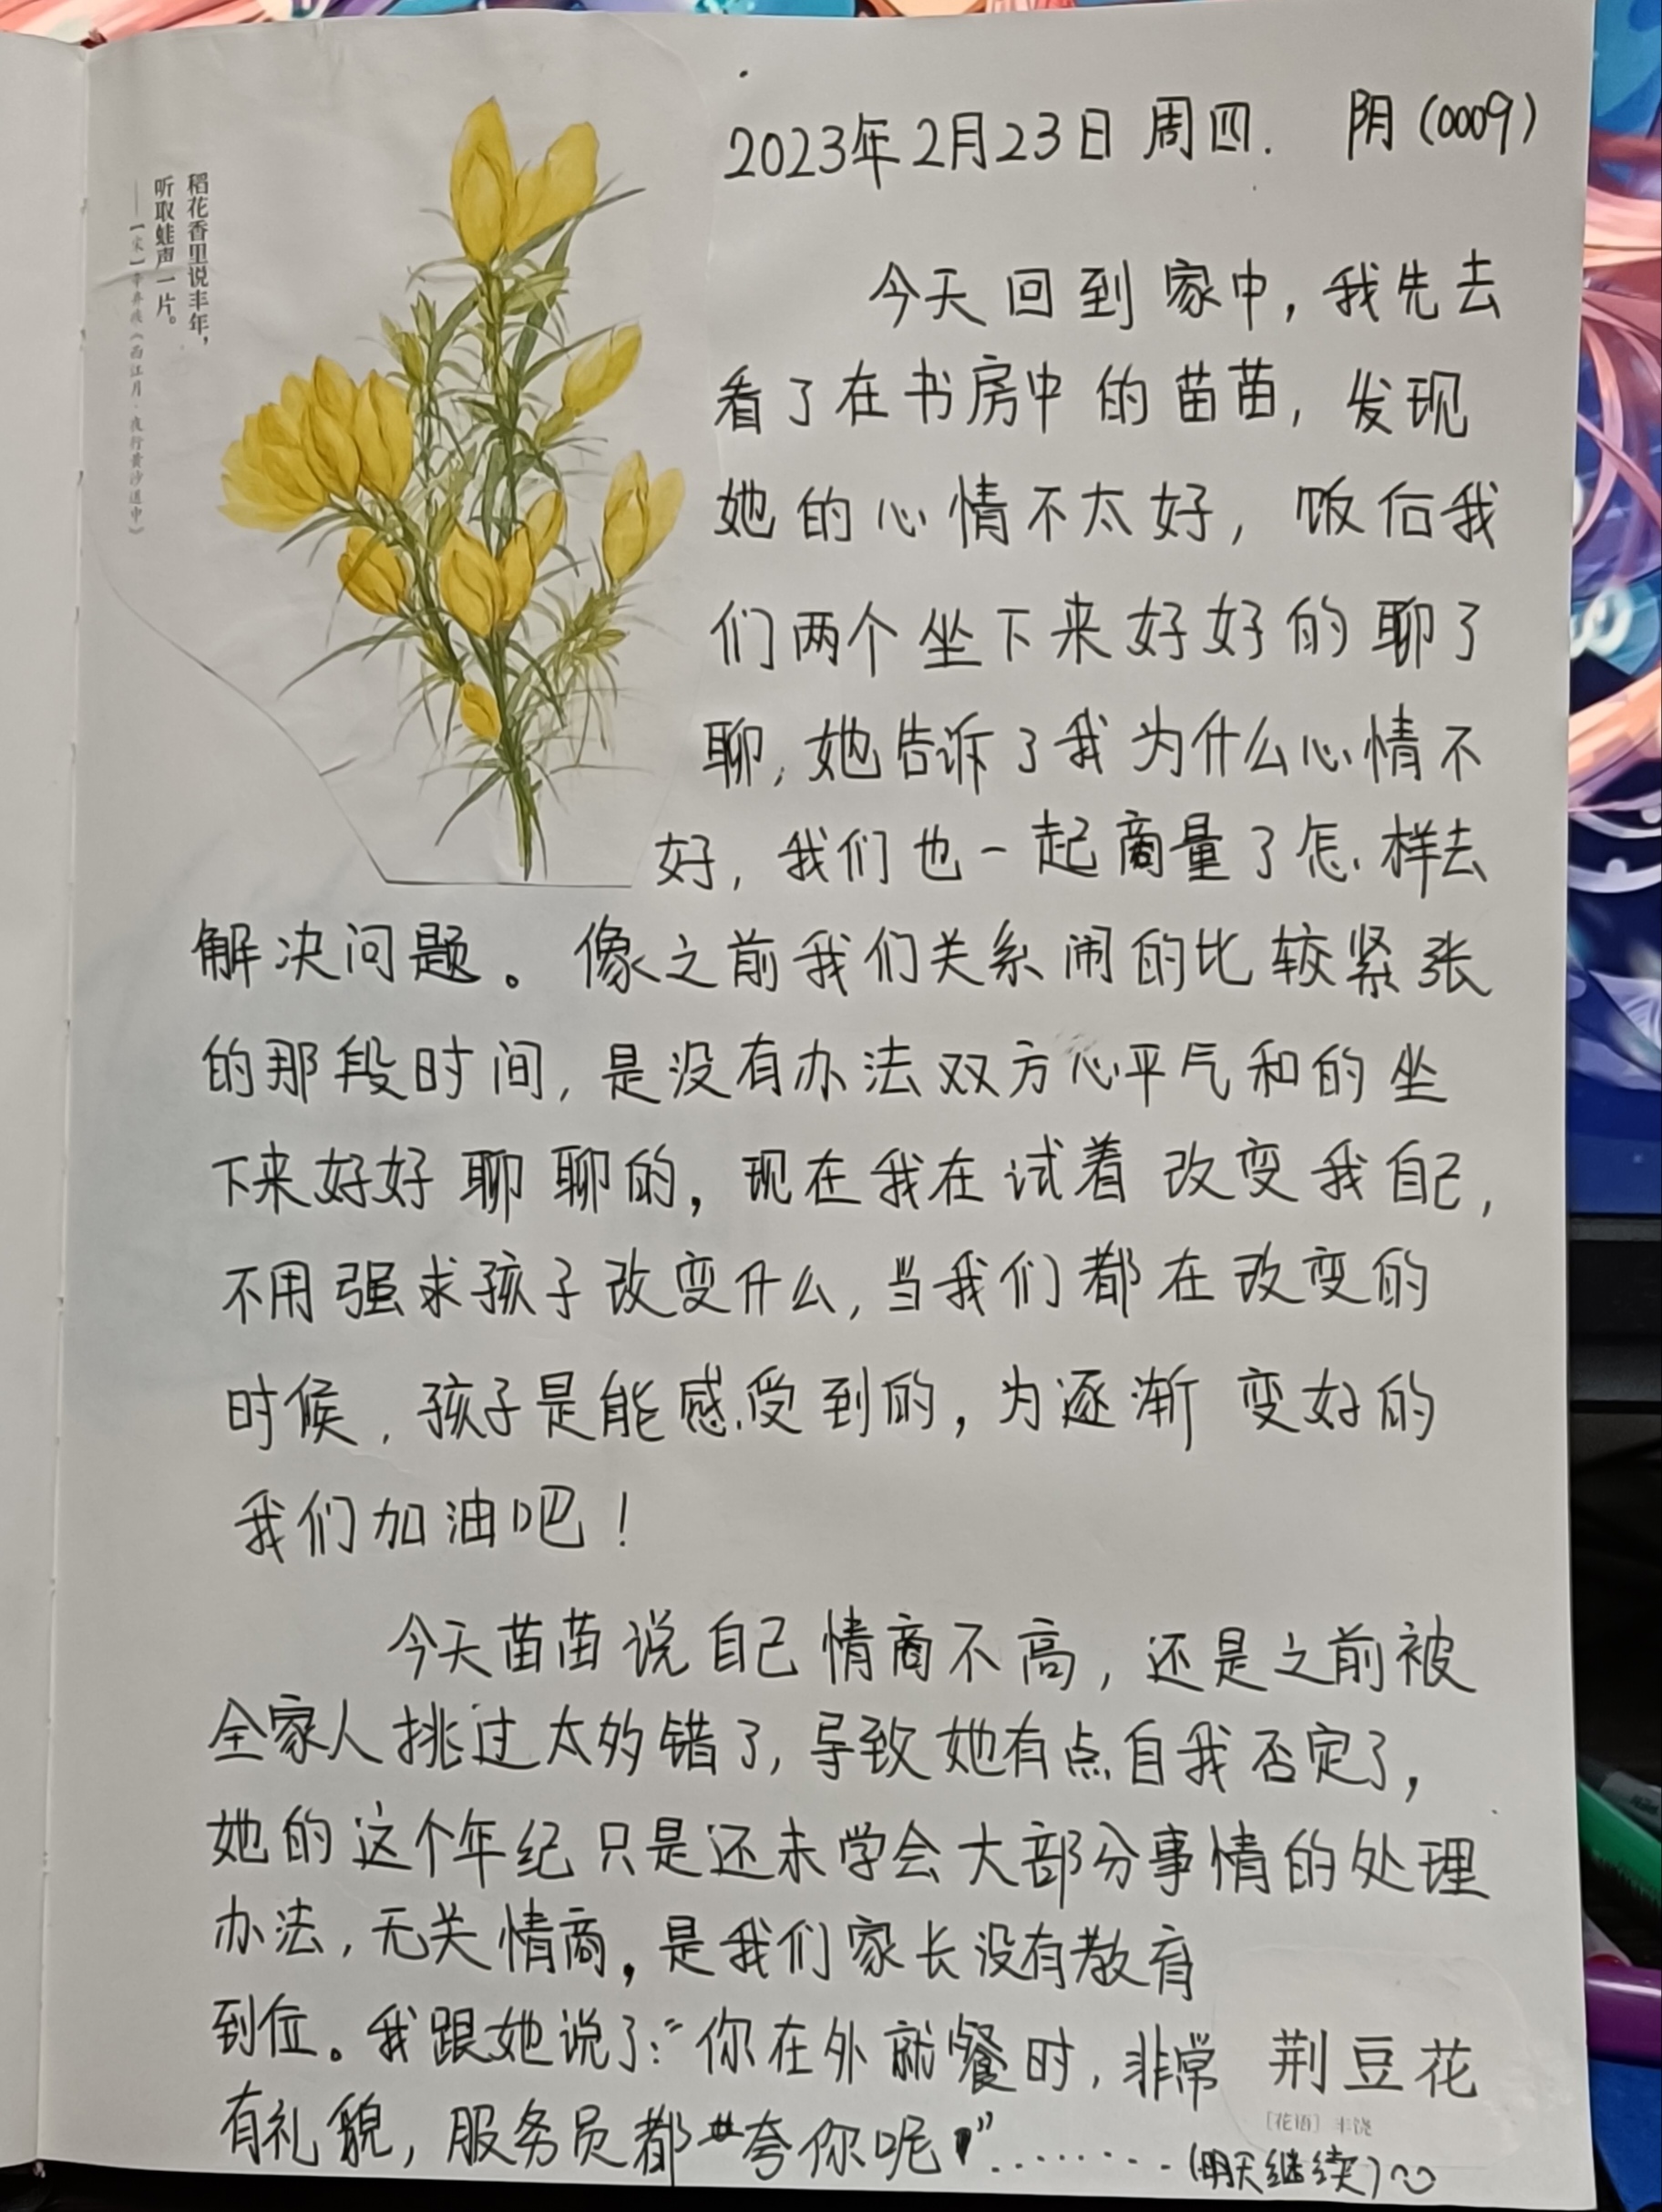 稻花香里说丰年，
听取蛙声一片。
——【宋】辛弃疾《西江月·夜行黄沙道中》
2023年2月23日 周四. 阴(0009)
今天回到家中，我先去
看了在书房中的苗苗，发现
她的心情不太好，饭后我
们两个坐下来好好的聊了
聊，她告诉了我为什么心情不
好，我们也一起商量了怎样去
解决问题。像之前我们关系闹的比较紧张
的那段时间，是没有办法双方心平气和的坐
下来好好聊聊的，现在我在试着改变我自己，
不用强求孩子改变什么，当我们都在改变的
时候，孩子是能感受到的，为逐渐变好的
我们加油吧！
今天苗苗说自己情商不高，还是之前被
全家人挑过太多错了，导致她有点自我否定了，
她的这个年纪只是还未学会大部分事情的处理
办法，无关情商，是我们家长没有教育
到位。我跟她说了：“你在外就餐时，非常
有礼貌，服务员都夸你呢！”………(明天继续)
荆豆花
［花语］丰饶